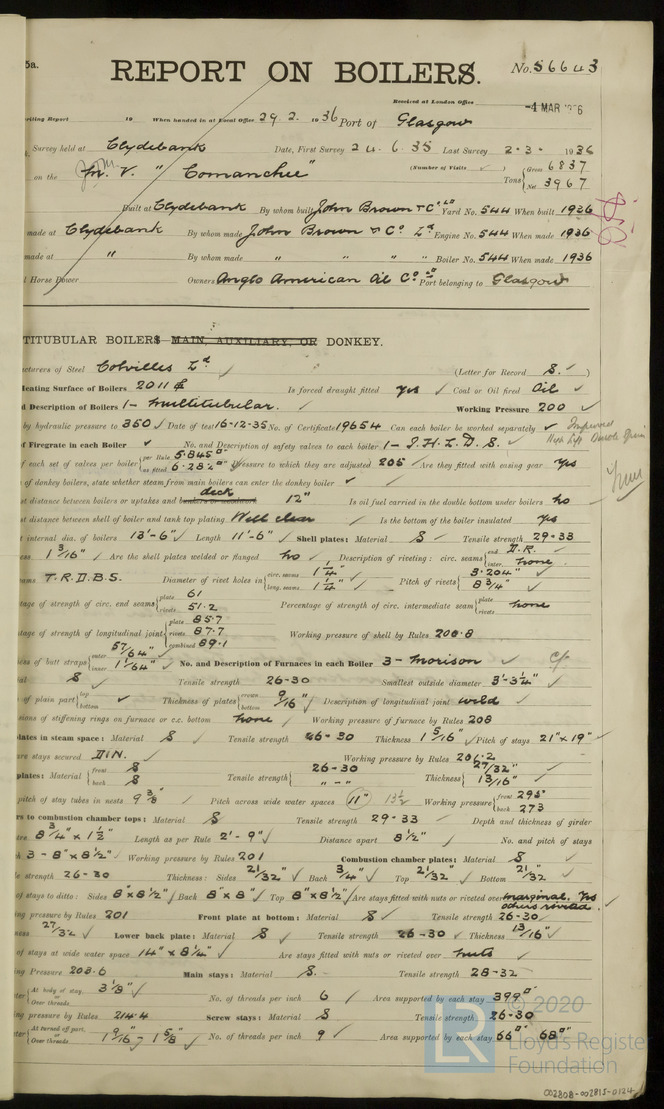 5a.
REPORT ON BOILERS.
No. 56643
Received at London Office -4 MAR 1936
writing Report 19 When handed in at Local Office 29.2. 1936 Port of Glasgow
Survey held at Clydebank Date, First Survey 24.6.35 Last Survey 2.3. 1936
on the M.V. "Comanchee" (Number of Visits ) Tons { Gross 6837 Net 3967
Built at Clydebank By whom built John Brown & Co Ld Yard No. 544 When built 1936
made at Clydebank By whom made John Brown & Co Ld Engine No. 544 When made 1936
made at " By whom made " " " " Boiler No. 544 When made 1936
Horse Power Owners Anglo American Oil Co Ld Port belonging to Glasgow
TITUBULAR BOILERS MAIN, AUXILIARY, OR DONKEY.
cturers of Steel Colvilles Ld (Letter for Record S. )
Heating Surface of Boilers 2011 Is forced draught fitted yes Coal or Oil fired Oil
Description of Boilers 1- Multitubular. Working Pressure 200
by hydraulic pressure to 350 Date of test 16-12-35 No. of Certificate 19654 Can each boiler be worked separately
of Firegrate in each Boiler No. and Description of safety valves to each boiler 1- I.H.L.D.S. Improved High Lift Double Spring
of each set of valves per boiler { per Rule 5.845" as fitted 6.282" Pressure to which they are adjusted 205 Are they fitted with easing gear Yes
of donkey boilers, state whether steam from main boilers can enter the donkey boiler
st distance between boilers or uptakes and bunkers or woodwork deck 12" Is oil fuel carried in the double bottom under boilers no
st distance between shell of boiler and tank top plating Well clear Is the bottom of the boiler insulated yes
internal dia. of boilers 13'-6" Length 11'-6" Shell plates: Material S Tensile strength 29-33
ess 1 3/16" Are the shell plates welded or flanged no Description of riveting: circ. seams { end D.R. inter. none
ams T.R.D.B.S. Diameter of rivet holes in { circ. seams 1 1/4" long. seams 1 1/4" Pitch of rivets { 3.204" 8 3/4"
tage of strength of circ. end seams { plate 61 rivets 51.2 Percentage of strength of circ. intermediate seam { plate rivets none
tage of strength of longitudinal joint { plate 85.7 rivets 87.7 combined 89.1 Working pressure of shell by Rules 200.8
ess of butt straps { outer 57/64" inner 1 1/64" No. and Description of Furnaces in each Boiler 3- Morison
ial S Tensile strength 26-30 Smallest outside diameter 3'-3 1/4"
of plain part { top bottom Thickness of plates { crown bottom 9/16" Description of longitudinal joint weld
sions of stiffening rings on furnace or c.c. bottom none Working pressure of furnace by Rules 208
plates in steam space: Material S Tensile strength 26-30 Thickness 1 5/16" Pitch of stays 21" x 19"
are stays secured D.N. Working pressure by Rules 206.2
plates: Material { front S back S Tensile strength { 26-30 " - " Thickness { 27/32" 13/16"
pitch of stay tubes in nests 9 3/8 Pitch across wide water spaces 11" 13 1/2 Working pressure { front 295 back 273
rs to combustion chamber tops: Material S Tensile strength 29-33 Depth and thickness of girder
tre 8 3/4" x 1 1/2" Length as per Rule 2'-9" Distance apart 8 1/2" No. and pitch of stays
3-8" x 8 1/2" Working pressure by Rules 201 Combustion chamber plates: Material S
le strength 26-30 Thickness: Sides 21/32" Back 3/4" Top 21/32" Bottom 21/32
of stays to ditto: Sides 8" x 8 1/2" Back 8" x 8" Top 8" x 8 1/2" Are stays fitted with nuts or riveted over marginal. Yes others riveted.
ing pressure by Rules 201 Front plate at bottom: Material S Tensile strength 26-30
ness 27/32 Lower back plate: Material S Tensile strength 26-30 Thickness 13/16"
of stays at wide water space 14" x 8 1/4" Are stays fitted with nuts or riveted over nuts
ing Pressure 203.6 Main stays: Material S. Tensile strength 28-32
ter { At body of stay, or Over threads 3 1/8" No. of threads per inch 6 Area supported by each stay 399"
ing pressure by Rules 214.4 Screw stays: Material S Tensile strength 26-30
ter { At turned off part, or Over threads 1 9/16" - 1 5/8" No. of threads per inch 9 Area supported by each stay 66" 68"
LR © 2020
Lloyd's Register
Foundation
002808-002813-0124